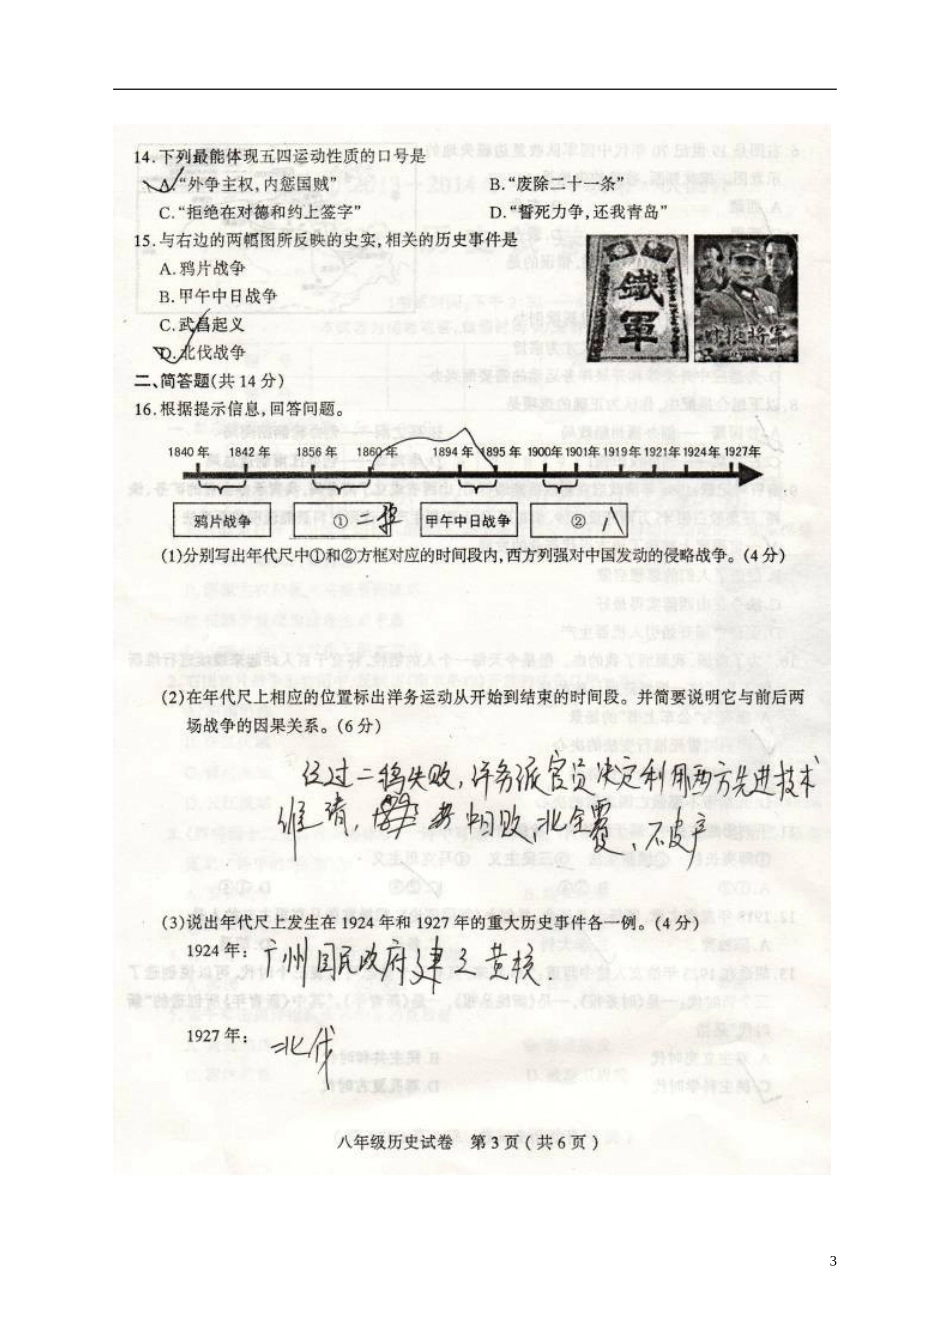 14.下列最能体现五四运动性质的口号是
A.“外争主权,内惩国贼” B.“废除二十一条”
C.“拒绝在对德和约上签字” D.“誓死力争,还我青岛”
15.与右边的两幅图所反映的史实,相关的历史事件是
A.鸦片战争
B.甲午中日战争
C.武昌起义
D.北伐战争
鐵軍
叶挺将军
二、简答题(共14分)
16.根据提示信息,回答问题。
1840年 1842年 1856年 1860年 1894年 1895年 1900年 1901年 1919年 1921年 1924年 1927年
鸦片战争 ① 二鸦 甲午中日战争 ② 八
(1)分别写出年代尺中①和②方框对应的时间段内,西方列强对中国发动的侵略战争。(4分)
(2)在年代尺上相应的位置标出洋务运动从开始到结束的时间段。并简要说明它与前后两
场战争的因果关系。(6分)
经过二鸦失败,洋务派官员决定利用西方先进技术
维清, 中日败,北全覆,不破产
(3)说出年代尺上发生在1924年和1927年的重大历史事件各一例。(4分)
1924年: 广州国民政府建立 黄校.
1927年: 北伐
八年级历史试卷 第3页(共6页)
3